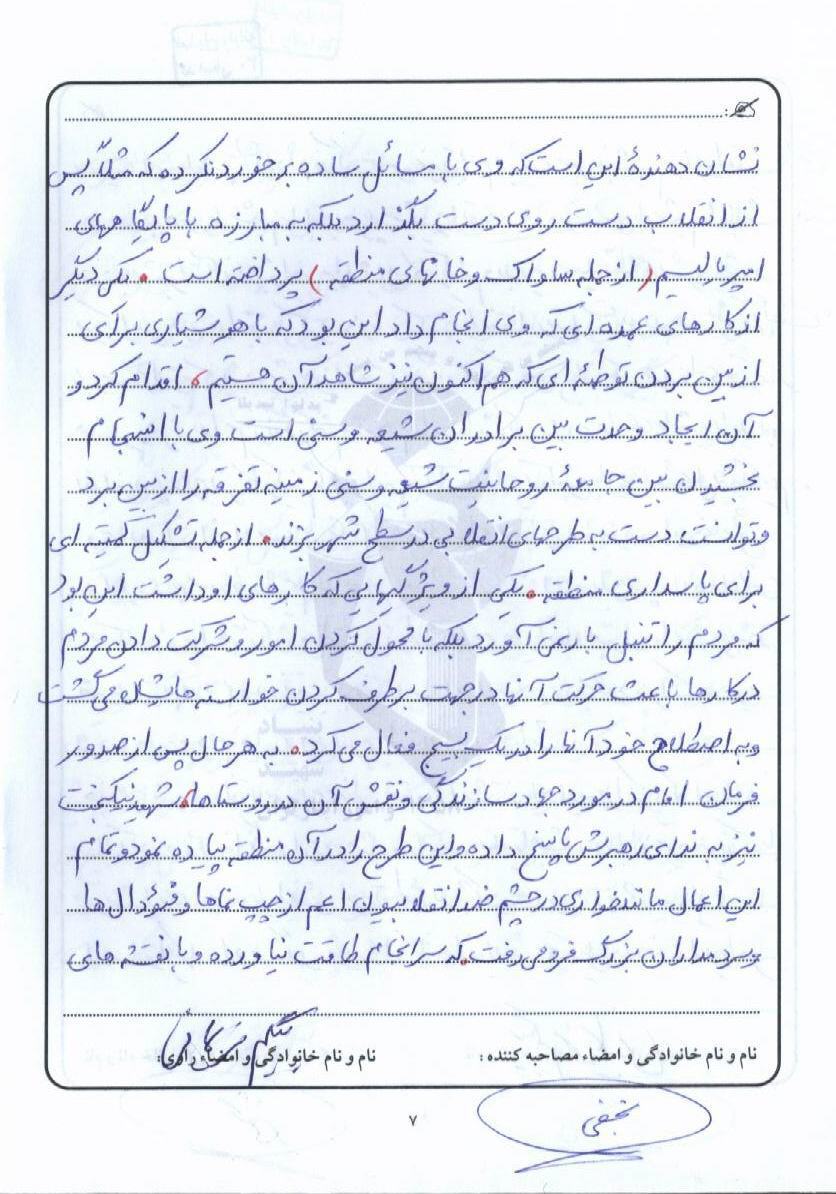 نشان دهندۀ این است که وی با مسائل ساده برخورد نکرده که مثلاً پس
از انقلاب دست روی دست بگذارد بلکه به مبارزه با پایگاههای
امپریالیسم (ازجمله ساواک و خانهای منطقه) پرداخته است. یکی دیگر
از کارهای عمده ای که وی انجام داد این بود که با هوشیاری برای
ازبین بردن توطئه ای که هم اکنون نیز شاهد آن هستیم، اقدام کرد و
آن ایجاد وحدت بین برادران شیعه و سنی است وی با انسجام
بخشیدن بین جامعۀ روحانیت شیعه و سنی زمینه تفرقه را ازبین برد
و توانست دست به طرحهای انقلابی در سطح شهر بزند. ازجمله تشکیل کمیته ای
برای پاسداری منطقه. یکی از ویژگیهایی که کارهای او داشت این بود
که مردم را تنبل بار نمی آورد بلکه با محول کردن امور و شرکت دادن مردم
در کارها باعث حرکت آنها در جهت برطرف کردن خواسته هایشان می گشت
و به اصطلاح خود آنها را در یک بسیج فعال می کرد. به هر حال پس از صدور
فرمان امام در مورد جهاد سازندگی و نقش آن در روستاها، شهید نیکبخت
نیز به ندای رهبرش پاسخ داده و این طرح را در آن منطقه پیاده نمود و تمام
این اعمال مانند خواری در چشم ضد انقلابیون اعم از چپ نماها و فئودال ها
و سردمداران بزرگ فرو می رفت. که سرانجام طاقت نیاورده و با نقشه های
نام و نام خانوادگی و امضاء مصاحبه کننده :
نام و نام خانوادگی و امضاء راوی:
نجفی
۷